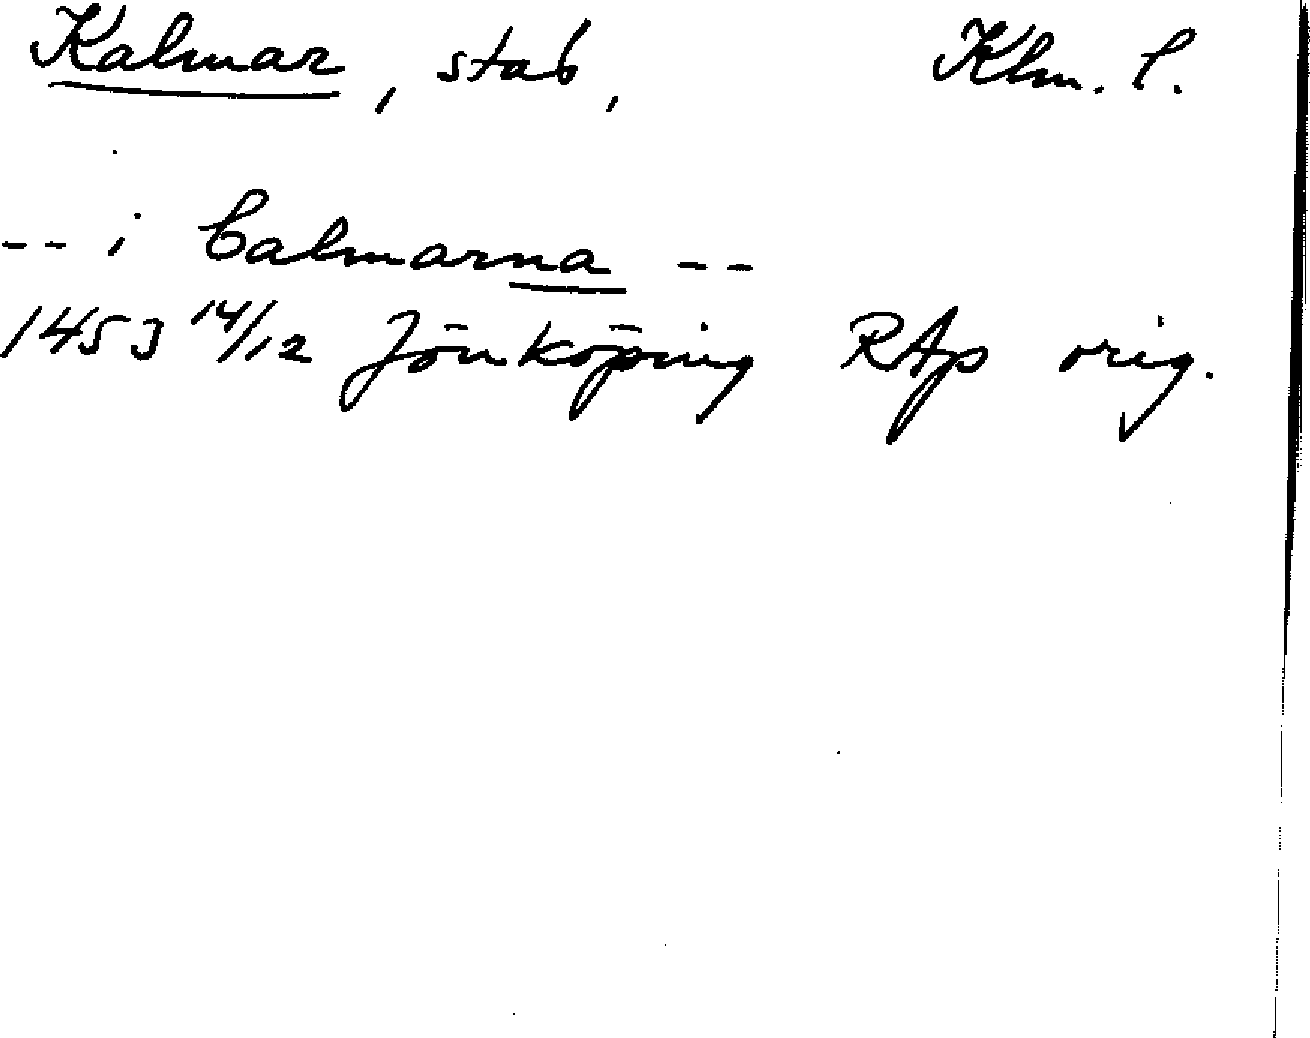 Kalmar, stad, Klm. l.
-- i Calmarna --
1453 14/12 Jönköping RAp orig.